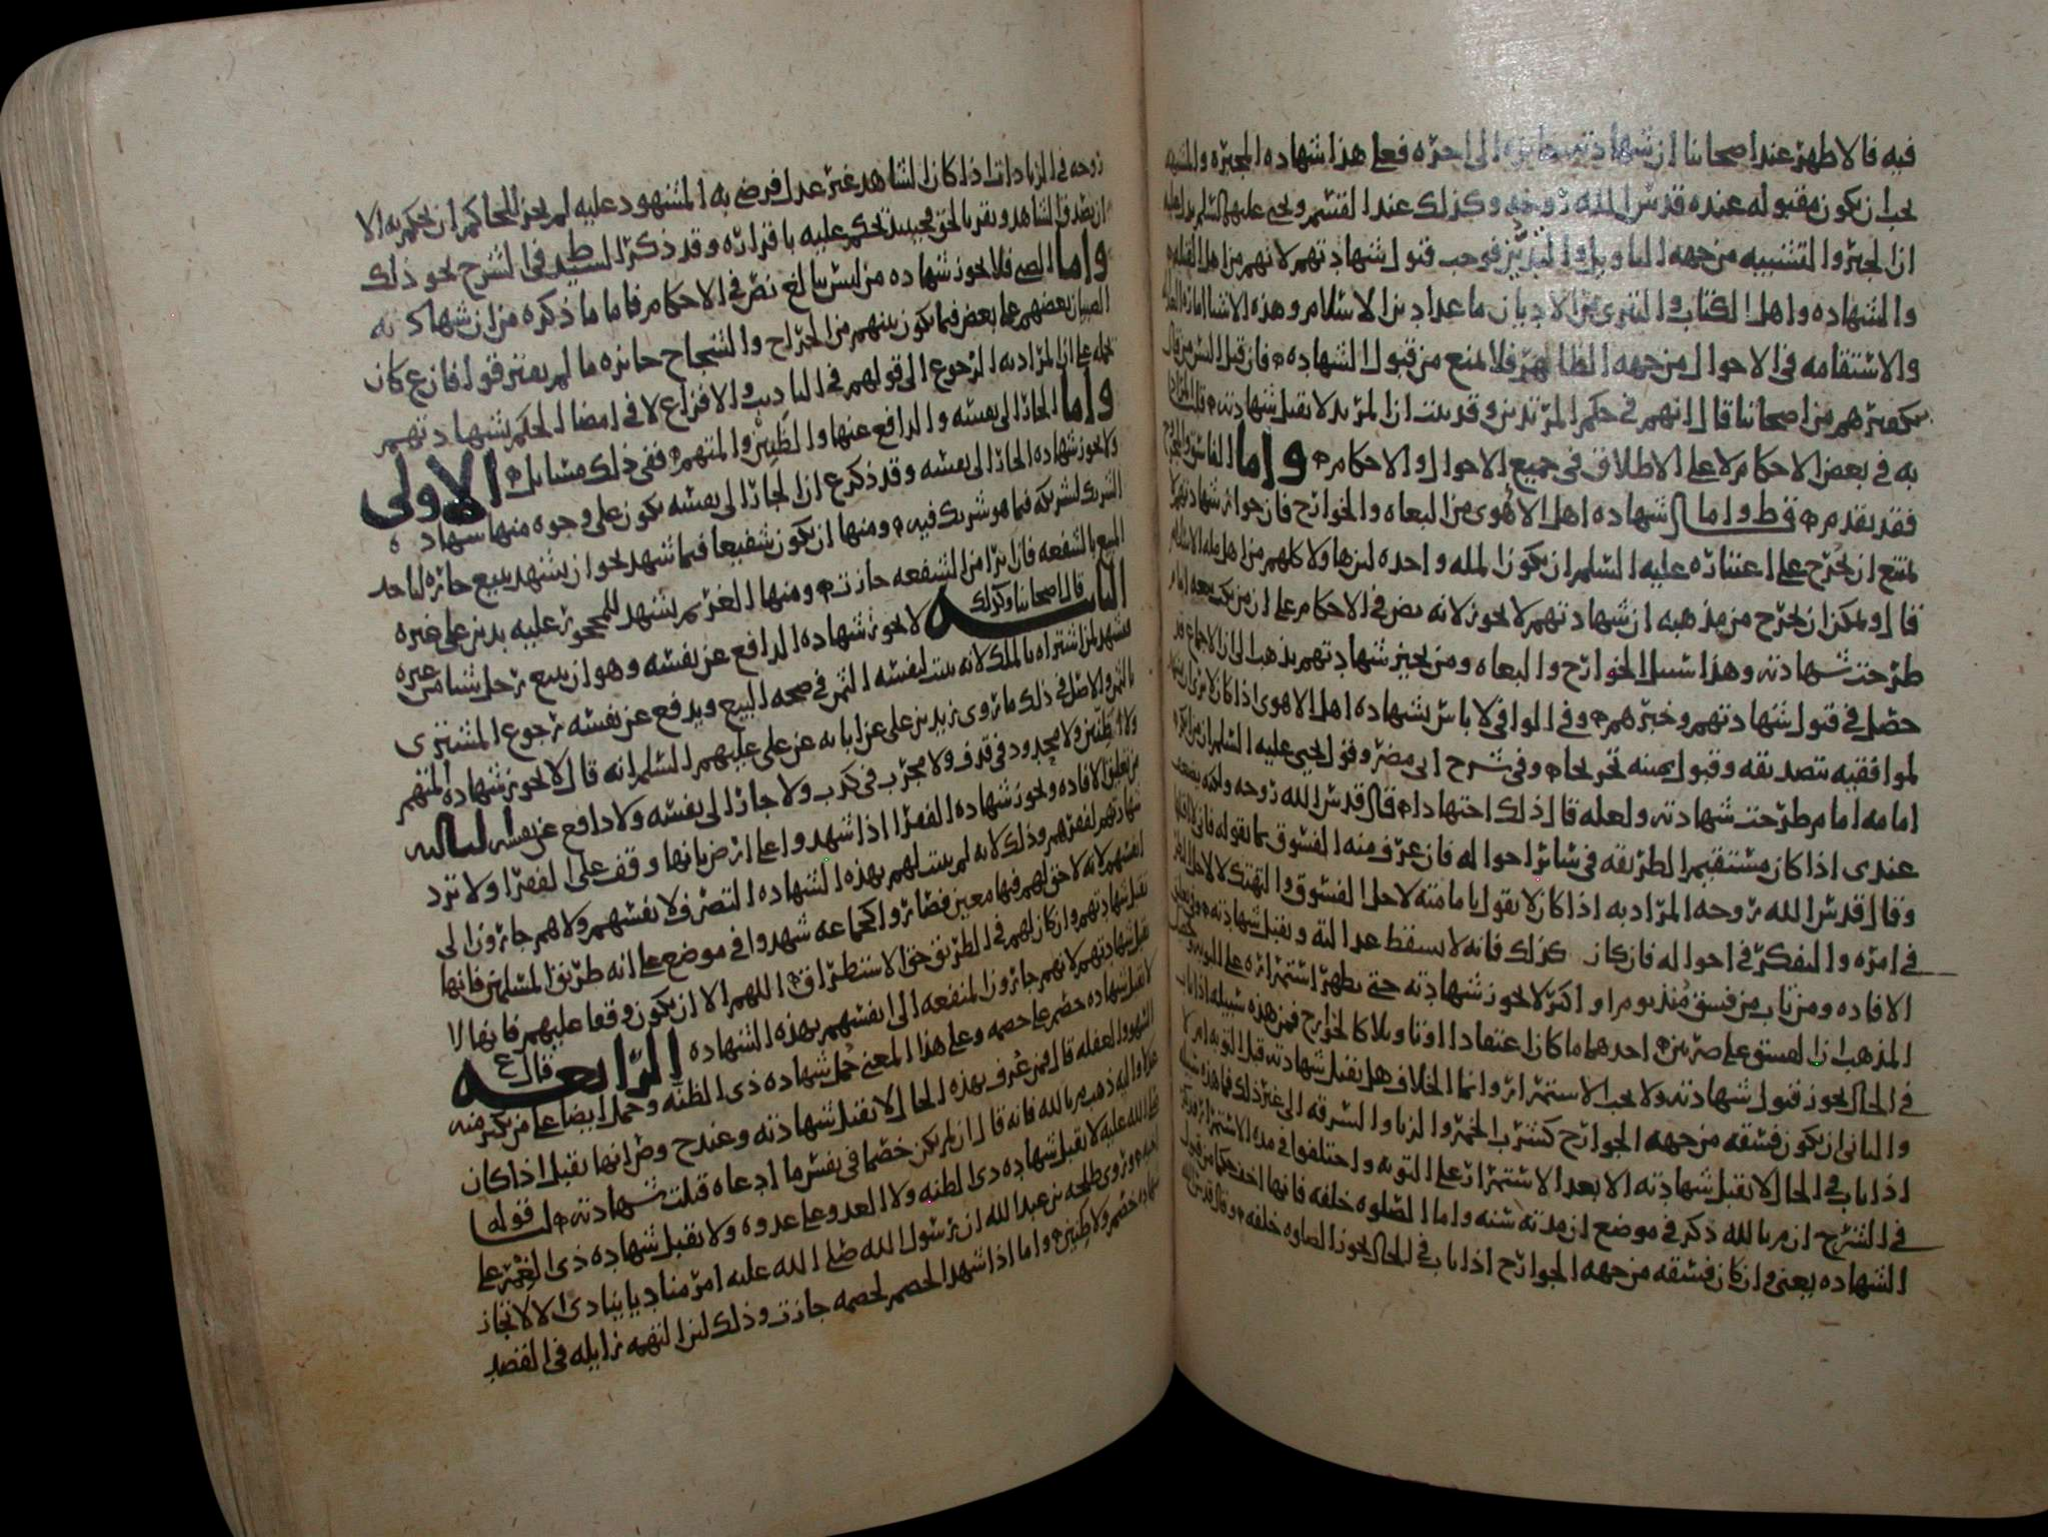 فيه فالاظهر عند اصحابنا ان شهادته جائزه الى اخره فعلى هذا شهاده المجبره والمشبهه
يجب ان يكون مقبوله عنده قدس الله روحه وكذلك عند القسم ويحيى عليهما السلم
ان الجبر والتشبيه من جهه التاويل والتدين فوجب قبول شهادتهم لانهم من اهل القبله
والشهاده واهل الكتاب والتبري من الاديان ما عدا دين الاسلام وهذه الاشيا اماره العداله
والاستقامه في الاحوال من جهه الظاهر فلا يمنع من قبول الشهاده فان قيل اليس من قال
بكفرهم من اصحابنا قال انهم في حكم المرتدين وقد بينت ان المرتد لا تقبل شهادته قلنا المراد
به في بعض الاحكام لا على الاطلاق في جميع الاحوال والاحكام واما الفاسق
فقد تقدم قط واما شهاده اهل الاهوى من البغاه والخوارج فان جواز شهادتهم
يمتنع ان يخرج على اعتباره عليه السلم ان يكون المله واحده لانها ولا كلهم من اهل مله الاسلام
قال ويمكن ان يخرج من مذهبه ان شهادتهم لا تجوز لانه نص في الاحكام على ان من نكث بيعه امام
طرحت شهادته وهذا سبيل الخوارج والبغاه ومن يجيز شهادتهم يذهب الى ان الاجماع قد
حصل في قبول شهادتهم وخبرهم وفي الوافي لا باس بشهاده اهل الاهوى اذا كان لا يرى
لموافقيه بتصديقه وقبول يمينه تحريجا وفي شرح ابي مضر وقول يحيى عليه السلم ان من انكر
امامه امام طرحت شهادته ولعله قال ذلك اجتهادا قال قدس الله روحه
عندي اذا كان مستقيم الطريقه في سائر احواله فان عرف منه الفسوق بما يقوله فان
وقال قدس الله روحه المراد به اذا كان لا يقول بامامته لاجل الفسوق والتهتك لا لاجل النظر
في امره والتفكر في احواله فان كان كذلك فانه لا يسقط عدالته وتقبل شهادته
الافاده ومن تاب من فسق منذ يوم او اكثر لا تجوز شهادته حتى يظهر استمراره على التوبه
المذهب ان الفسق على ضربين احدهما ما كان اعتقادا او تاويلا كالخوارج فمن هذه سبيله اذا تاب
في الحال يجوز قبول شهادته ولا يجب الاستمرار وانما الخلاف هل تقبل شهادته قبل التوبه ام لا
والثاني ان يكون فسقه من جهه الجوارح كشرب الخمر والزنا والسرقه الى غير ذلك فما هذه سبيله
اذا تاب في الحال لا تقبل شهادته الا بعد الاستمرار على التوبه واختلفوا في مده الاستمرار
في الشرح ان م بالله ذكر في موضع ان مدته سنه واما الصلوه خلفه فانها اخف حكما من قبول
الشهاده يعني وان كان فسقه من جهه الجوارح اذا تاب في الحال تجوز الصلوه خلفه
روحه في الزيادات اذا كان الشاهد غير عدل فرضي به المشهود عليه لم يجز للحاكم ان يحكم به الا
ان يصدق الشاهد ويقر بالحق فحينئذ يحكم عليه باقراره وقد ذكر السيد ط في الشرح نحو ذلك
واما الصبي فلا تجوز شهاده من ليس ببالغ نص في الاحكام فاما ما ذكره من ان شهاده
الصبيان بعضهم على بعض فيما يكون بينهم من الجراح والشجاج جائزه ما لم يفترقوا فان ع كان
يحمله على ان المراد به الرجوع الى قولهم في التاديب والافزاع لا في امضا الحكم بشهادتهم
واما الجار الى نفسه والدافع عنها والظنين والمتهم ففي ذلك مسائل الاولى
ولا تجوز شهاده الجار الى نفسه وقد ذكر ع ان الجار الى نفسه يكون على وجوه منها شهاده
الشريك لشريكه فيما هو شريك فيه ومنها ان يكون شفيعا فيما شهد نحو ان يشهد ببيع جائزه لياخذ
المبيع بالشفعه فان برا من الشفعه جازت ومنها الغريم يشهد للمحجور عليه بدين على غيره
الثانيه قال اصحابنا وكذلك لا تجوز شهاده الدافع عن نفسه وهو ان يبيع رجل شيا من غيره
فيشهد لمن اشتراه بالملك لانه يثبت لنفسه الثمن في صحه البيع ويدفع عن نفسه رجوع المشتري
بالثمن والاصل في ذلك ما روى زيد بن علي عن ابائه عن علي عليهم السلم انه قال لا تجوز شهاده المتهم
ولا ظنين ولا محدود في قذف ولا مجرب في كذب ولا جار الى نفسه ولا دافع عن نفسه الثالثه
من تعليق الافاده وتجوز شهاده الفقرا اذا شهدوا على ارض بانها وقف على الفقرا ولا ترد
شهادتهم لفقرهم وذلك لانه لم يثبت لهم بهذه الشهاده التصرف لانفسهم ولا هم جارون الى
انفسهم لانه لا حق لهم فيها معين فصار كجماعه شهدوا في موضع على انه طريق المسلمين فانها
تقبل شهادتهم وان كان لهم في الطريق حق الاستطراق اللهم الا ان يكون وقفا عليهم فانها لا
تقبل شهادتهم لانهم جارون المنفعه الى انفسهم بهذه الشهاده الرابعه قال ع
لا تقبل شهاده خصم على خصمه وعلى هذا المعنى حمل شهاده ذي الظنه وحمل ايضا على من يكثر منه
السهو والغفله قال فمن عرف بهذه الحال لا تقبل شهادته وعند ح وص انها تقبل اذا كان
عدلا واليه ذهب م بالله فانه قال ان لم يكن خصما في نفس ما ادعاه قبلت شهادته لنا قوله
صلى الله عليه لا تقبل شهاده ذي الظنه ولا العدو على عدوه ولا تقبل شهاده ذي الغمر على
اخيه وروى طلحه بن عبد الله ان رسول الله صلى الله عليه امر مناديا ينادي الا لا تجاز
شهاده خصم ولا ظنين واما اذا شهد الخصم لخصمه جازت وذلك لان التهمه زايله في القصد